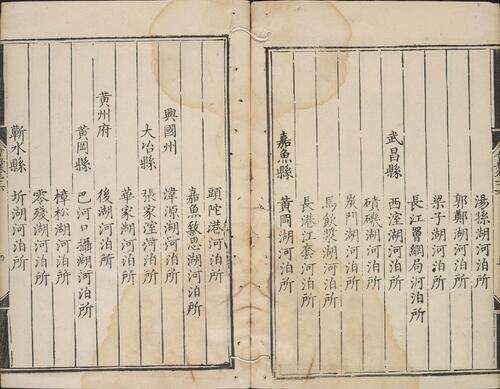 湯孫湖河泊所
郭鄭湖河泊所
梁子湖河泊所
長江罾網局河泊所
武昌縣
西湖河泊所
磧磯湖河泊所
炭門湖河泊所
馬飲漿湖河泊所
長港江套河泊所
嘉魚縣
黃岡湖河泊所
頭陀港河泊所
嘉魚敏思湖河泊所
興國州
湋源湖河泊所
大冶縣
張家河泊所
華家湖河泊所
黃州府
後湖河泊所
黃岡縣
巴河口攝湖河泊所
樟松湖河泊所
零殘湖河泊所
蘄水縣
圻湖河泊所